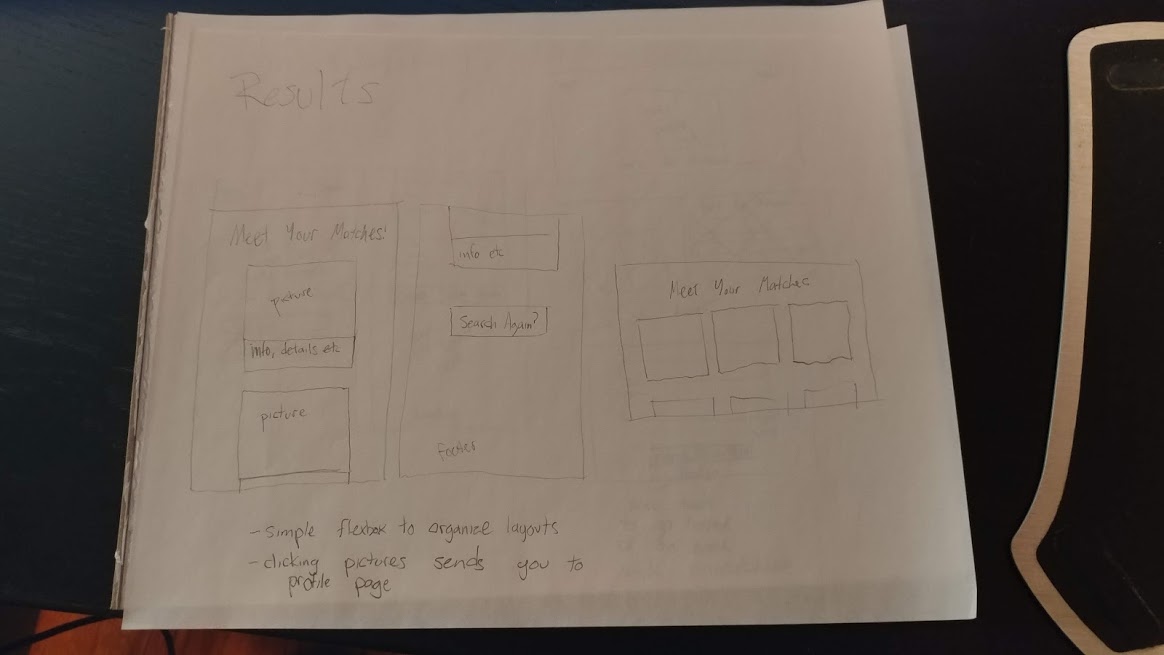 Results
Meet Your Matches!
picture
info, details etc
picture
info etc
Search Again?
Footer
Meet Your Matches
- simple flexbox to organize layouts
- clicking pictures sends you to
profile page